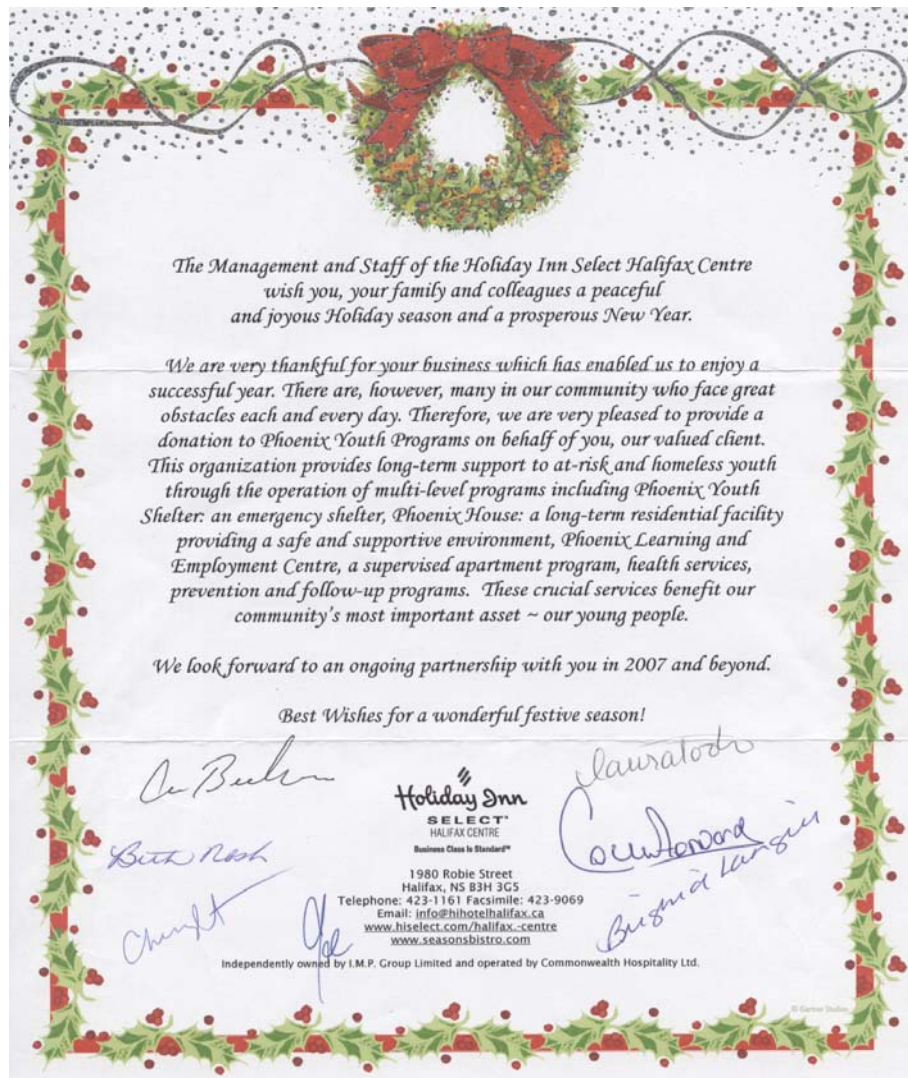 The Management and Staff of the Holiday Inn Select Halifax Centre
wish you, your family and colleagues a peaceful
and joyous Holiday season and a prosperous New Year.
We are very thankful for your business which has enabled us to enjoy a
successful year. There are, however, many in our community who face great
obstacles each and every day. Therefore, we are very pleased to provide a
donation to Phoenix Youth Programs on behalf of you, our valued client.
This organization provides long-term support to at-risk and homeless youth
through the operation of multi-level programs including Phoenix Youth
Shelter: an emergency shelter, Phoenix House: a long-term residential facility
providing a safe and supportive environment, Phoenix Learning and
Employment Centre, a supervised apartment program, health services,
prevention and follow-up programs. These crucial services benefit our
community's most important asset ~ our young people.
We look forward to an ongoing partnership with you in 2007 and beyond.
Best Wishes for a wonderful festive season!
Holiday Inn
SELECT
HALIFAX CENTRE
Business Class Is Standard™
Beth Nash
1980 Robie Street
Halifax, NS B3H 3G5
Telephone: 423-1161 Facsimile: 423-9069
Email: info@hihotelhalifax.ca
www.hiselect.com/halifax.-centre
www.seasonsbistro.com
Independently owned by I.M.P. Group Limited and operated by Commonwealth Hospitality Ltd.
© Gartner Studios